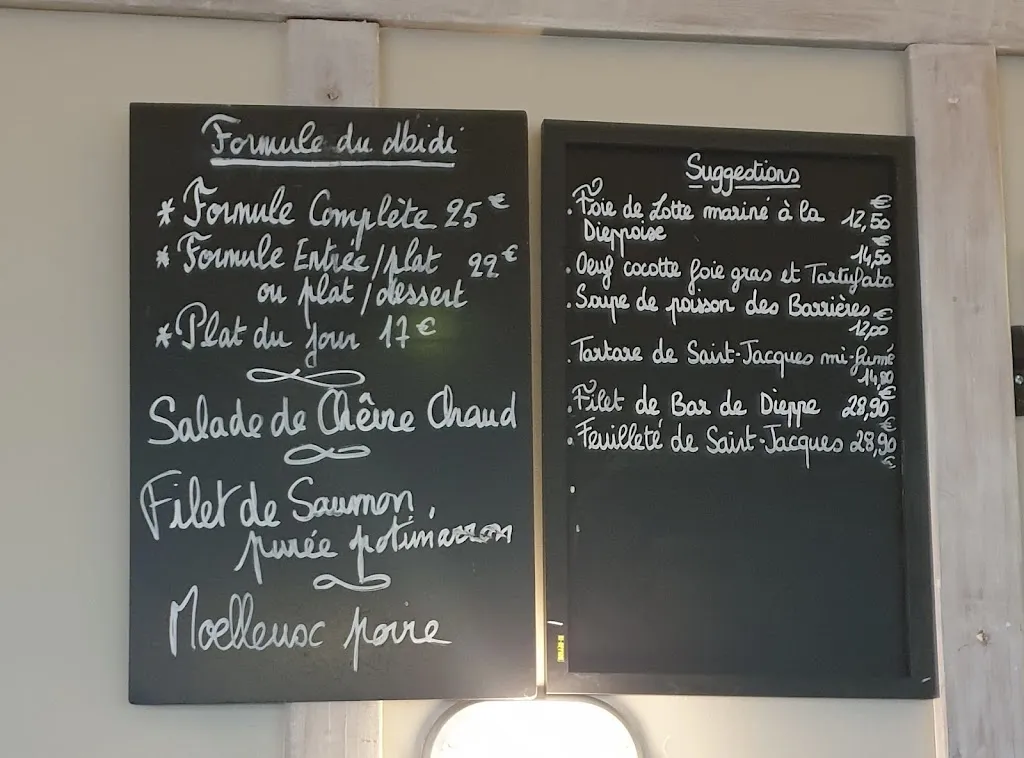 Formule du Midi
* Formule Complète 25€
* Formule Entrée/plat 22€
ou plat/dessert
* Plat du jour 17€
Salade de Chèvre Chaud
Filet de Saumon,
purée potimarron
Moelleux poire
Suggestions
. Foie de Lotte mariné à la 12,50€
Dieppoise
14,50€
. Oeuf cocotte foie gras et Tartufata
. Soupe de poisson des Barrières
12,00€
. Tartare de Saint-Jacques mi-fumé
14,90€
. Filet de Bar de Dieppe 28,90€
. Feuilleté de Saint-Jacques 28,90€